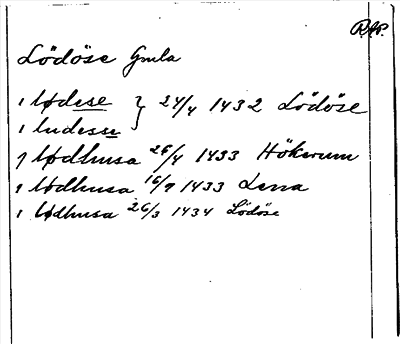 RAP.
Lödöse Gmla
i lødese } 24/4 1432 Lödöse
i ludesse
i lødhusa 26/4 1433 Hökerum
i lødhusa 16/9 1433 Lena
i lødhusa 26/3 1434 Lödöse